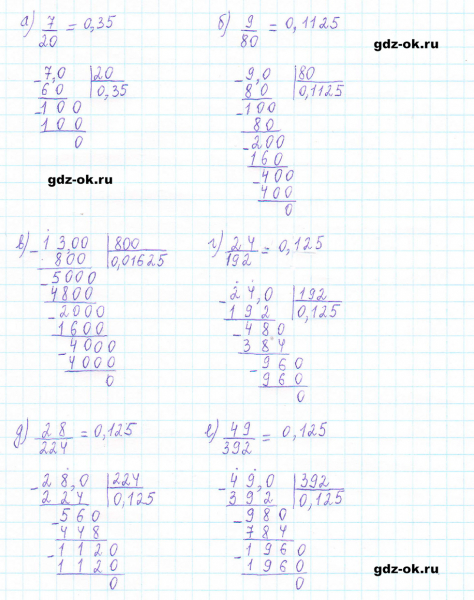 а) 7/20 = 0,35
-7,0 | 20
6 0 | 0,35
-1 0 0
1 0 0
0
gdz-ok.ru
б) 9/80 = 0,1125
gdz-ok.ru
-9,0 | 80
8 0 | 0,1125
-100
80
-200
160
-400
400
0
в) -13,00 | 800
800 | 0,01625
-5000
4800
-2000
1600
-4000
4000
0
г) 24/192 = 0,125
-24,0 | 192
192 | 0,125
-480
384
-960
960
0
д) 28/224 = 0,125
-28,0 | 224
224 | 0,125
-560
448
-1120
1120
0
е) 49/392 = 0,125
-49,0 | 392
392 | 0,125
-980
784
-1960
1960
0
gdz-ok.ru